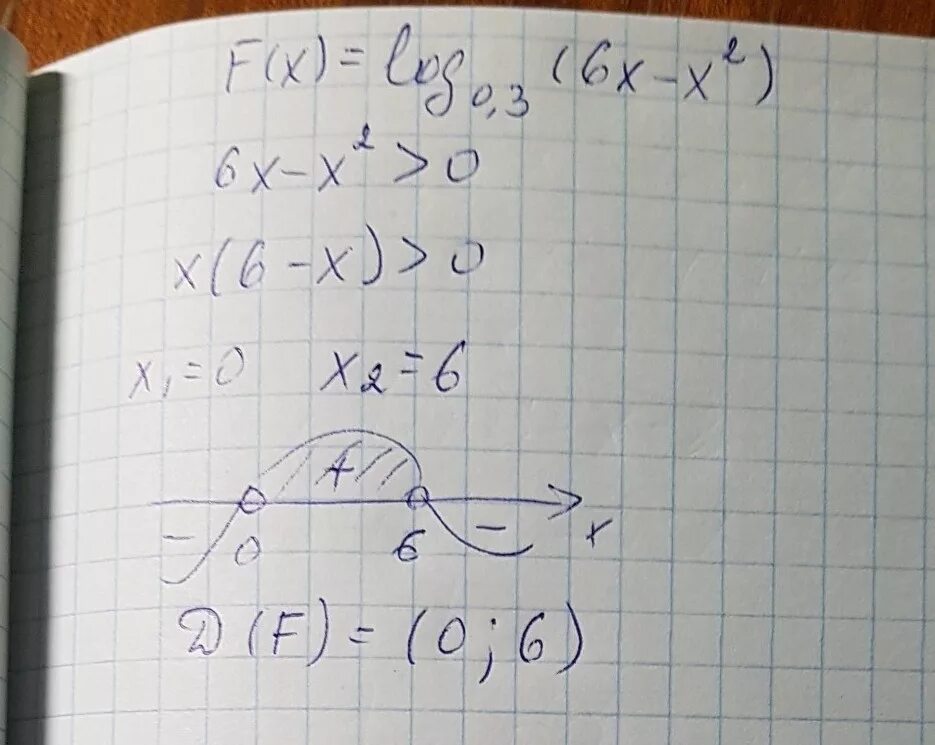 F(x) = log₀,₃ (6x – x²)
6x – x² > 0
x(6 – x) > 0
x₁ = 0 x₂ = 6
+
– 0 6 – x
D(F) = (0; 6)